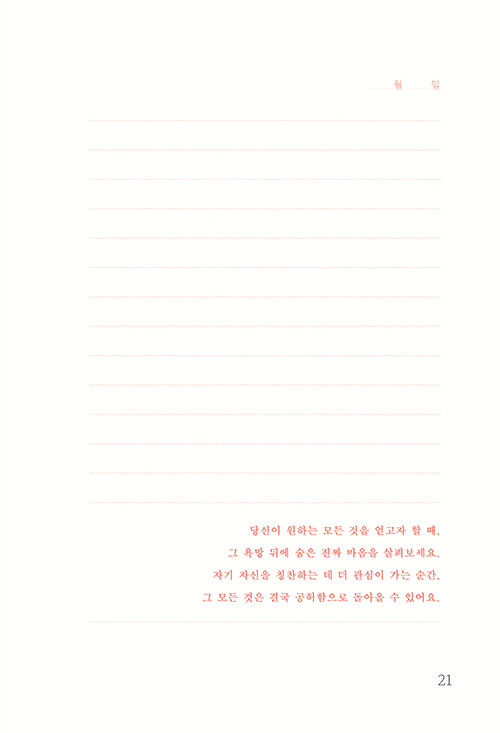 월 일
당신이 원하는 모든 것을 얻고자 할 때,
그 욕망 뒤에 숨은 진짜 마음을 살펴보세요.
자기 자신을 칭찬하는 데 더 관심이 가는 순간,
그 모든 것은 결국 공허함으로 돌아올 수 있어요.
21